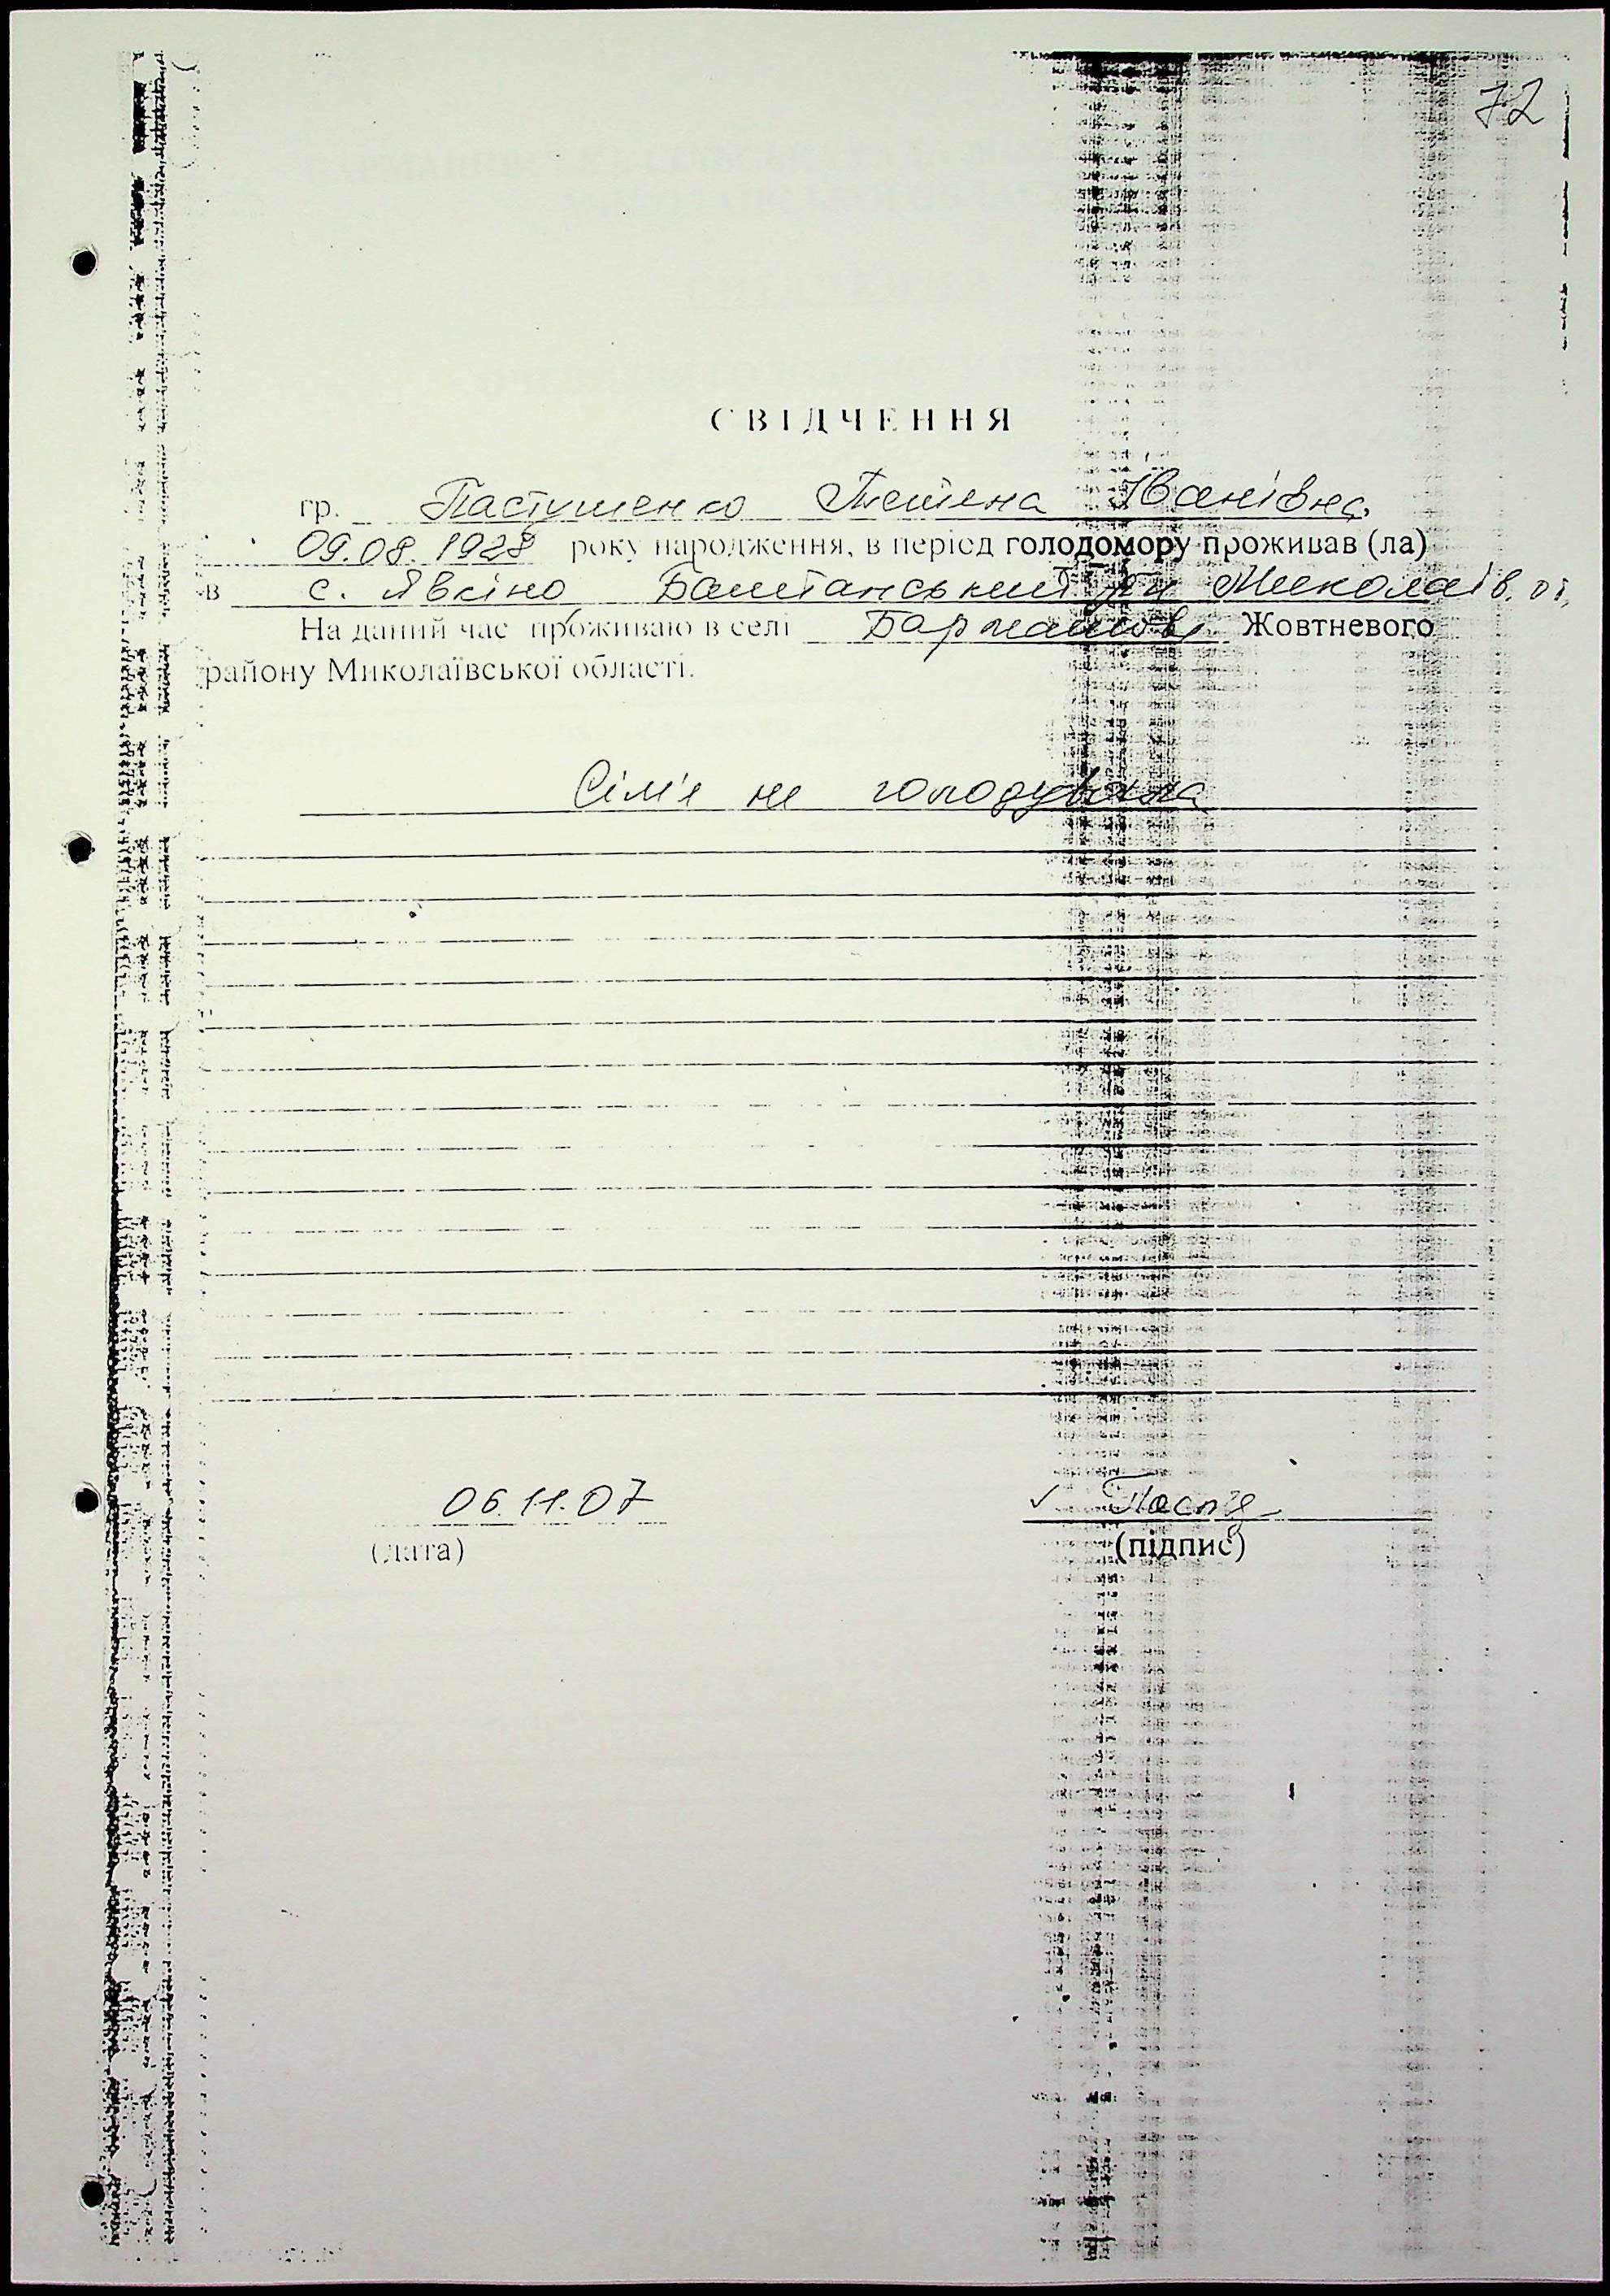 72
СВІДЧЕННЯ
гр. Пастушенко Тетяна Іванівна
09.08.1928 року народження, в період голодомору проживав (ла)
в с. Явкіно Баштанський р-н Миколаїв.
На даний час проживаю в селі Бармашове Жовтневого
району Миколаївської області.
Сім'я не голодувала
06.11.07
(дата) (підпис)